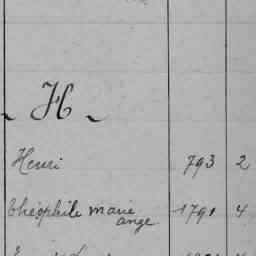 ~ H ~
Henri 793 2
théophile marie 1791 4
ange